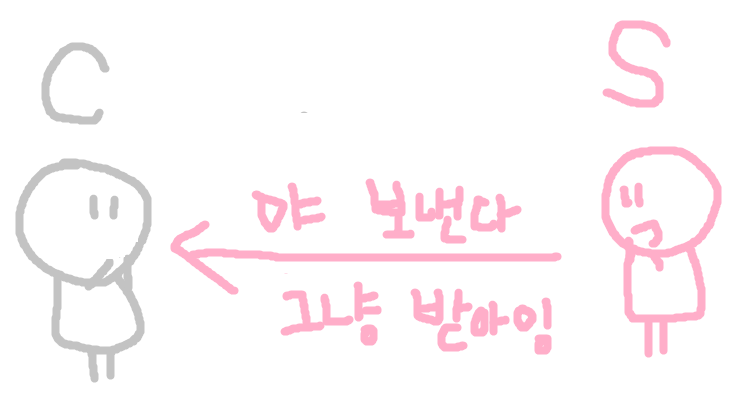 C
S
야 보낸다
그냥 받아임